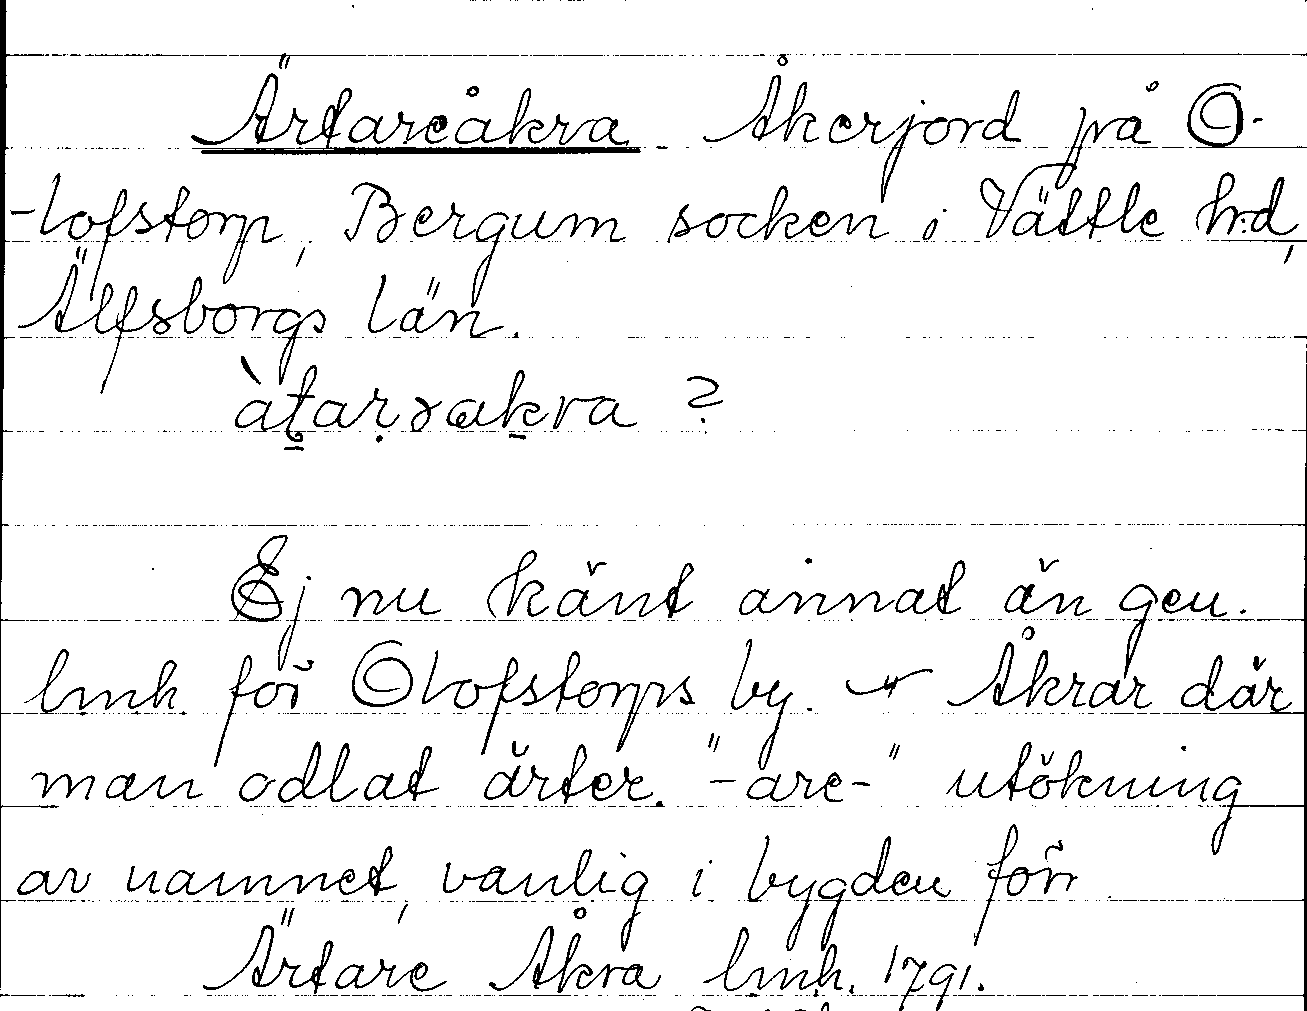 Ärtareåkra. Åkerjord på O-
-lofstorp, Bergum socken i Vättle h:d,
Älfsborgs län.
àtarɤakra ?
Ej nu känt annat än gen.
lmh. för Olofstorps by. Åkrar där
man odlat ärter. "-are-" utökning
av namnet, vanlig i bygden förr
Ärtare Åkra lmh. 1791.